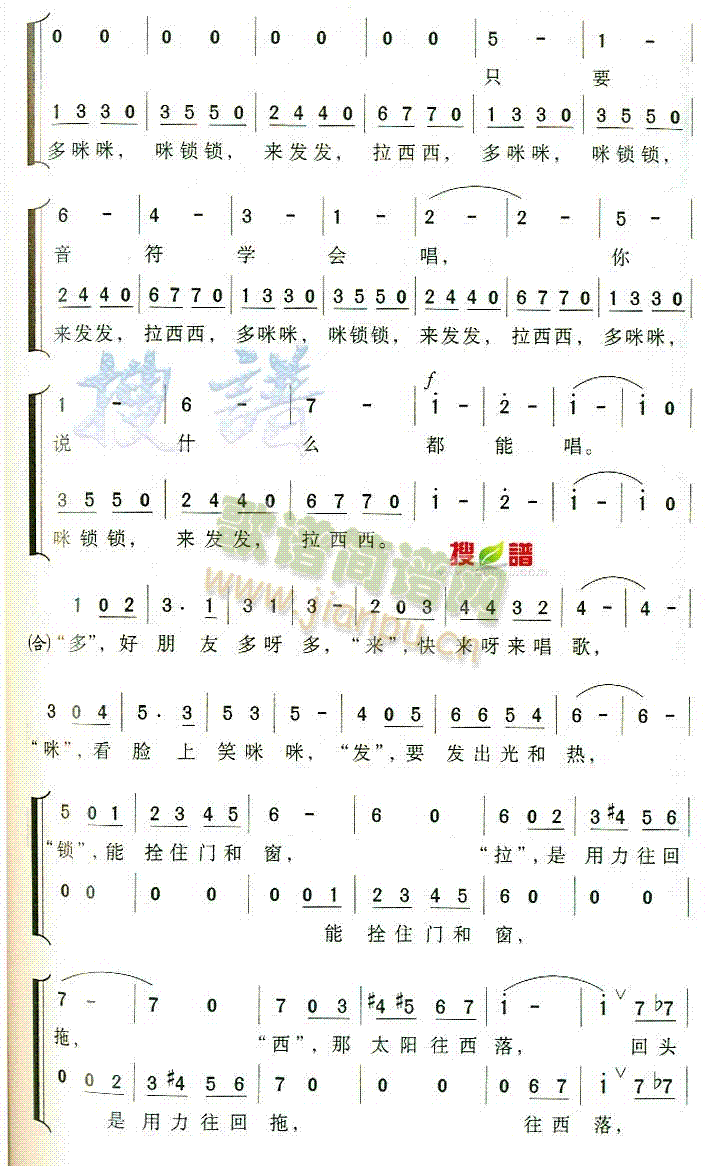 0 0 | 0 0 | 0 0 | 0 0 | 5 - | 1 - |
只 要
1 3 3 0 | 3 5 5 0 | 2 4 4 0 | 6 7 7 0 | 1 3 3 0 | 3 5 5 0 |
多咪咪， 咪锁锁， 来发发， 拉西西， 多咪咪， 咪锁锁，
6 - | 4 - | 3 - | 1 - | 2 - | 2 - | 5 - |
音 符 学 会 唱， 你
2 4 4 0 | 6 7 7 0 | 1 3 3 0 | 3 5 5 0 | 2 4 4 0 | 6 7 7 0 | 1 3 3 0 |
来发发， 拉西西， 多咪咪， 咪锁锁， 来发发， 拉西西， 多咪咪，
搜 谱
f
1 - | 6 - | 7 - | i - | 2̇ - | i - | i 0
说 什 么 都 能 唱。
3 5 5 0 | 2 4 4 0 | 6 7 7 0 | i - | 2̇ - | i - | i 0
咪锁锁， 来发发， 拉西西。
歌谱简谱网
搜 谱
www.jianpu.cn
1 0 2 | 3· 1 | 3 1 | 3 - | 2 0 3 | 4 4 3 2 | 4 - | 4 - |
㈣“多”，好朋友多呀多，“来”，快来呀来唱歌，
3 0 4 | 5· 3 | 5 3 | 5 - | 4 0 5 | 6 6 5 4 | 6 - | 6 - |
“咪”，看脸上笑咪咪，“发”，要发出光和热，
5 0 1 | 2 3 4 5 | 6 - | 6 0 | 6 0 2 | 3 #4 5 6 |
“锁”，能拴住门和窗， “拉”，是用力往回
0 0 | 0 0 | 0 0 1 | 2 3 4 5 | 6 0 | 0 0 |
能拴住门和窗，
7 - | 7 0 | 7 0 3 | #4 #5 6 7 | i - | i ∨ 7 ♭7 |
拖， “西”，那太阳往西落， 回头
0 0 2 | 3 #4 5 6 | 7 0 | 0 0 | 0 6 7 | i ∨ 7 ♭7 |
是用力往回拖， 往西落，